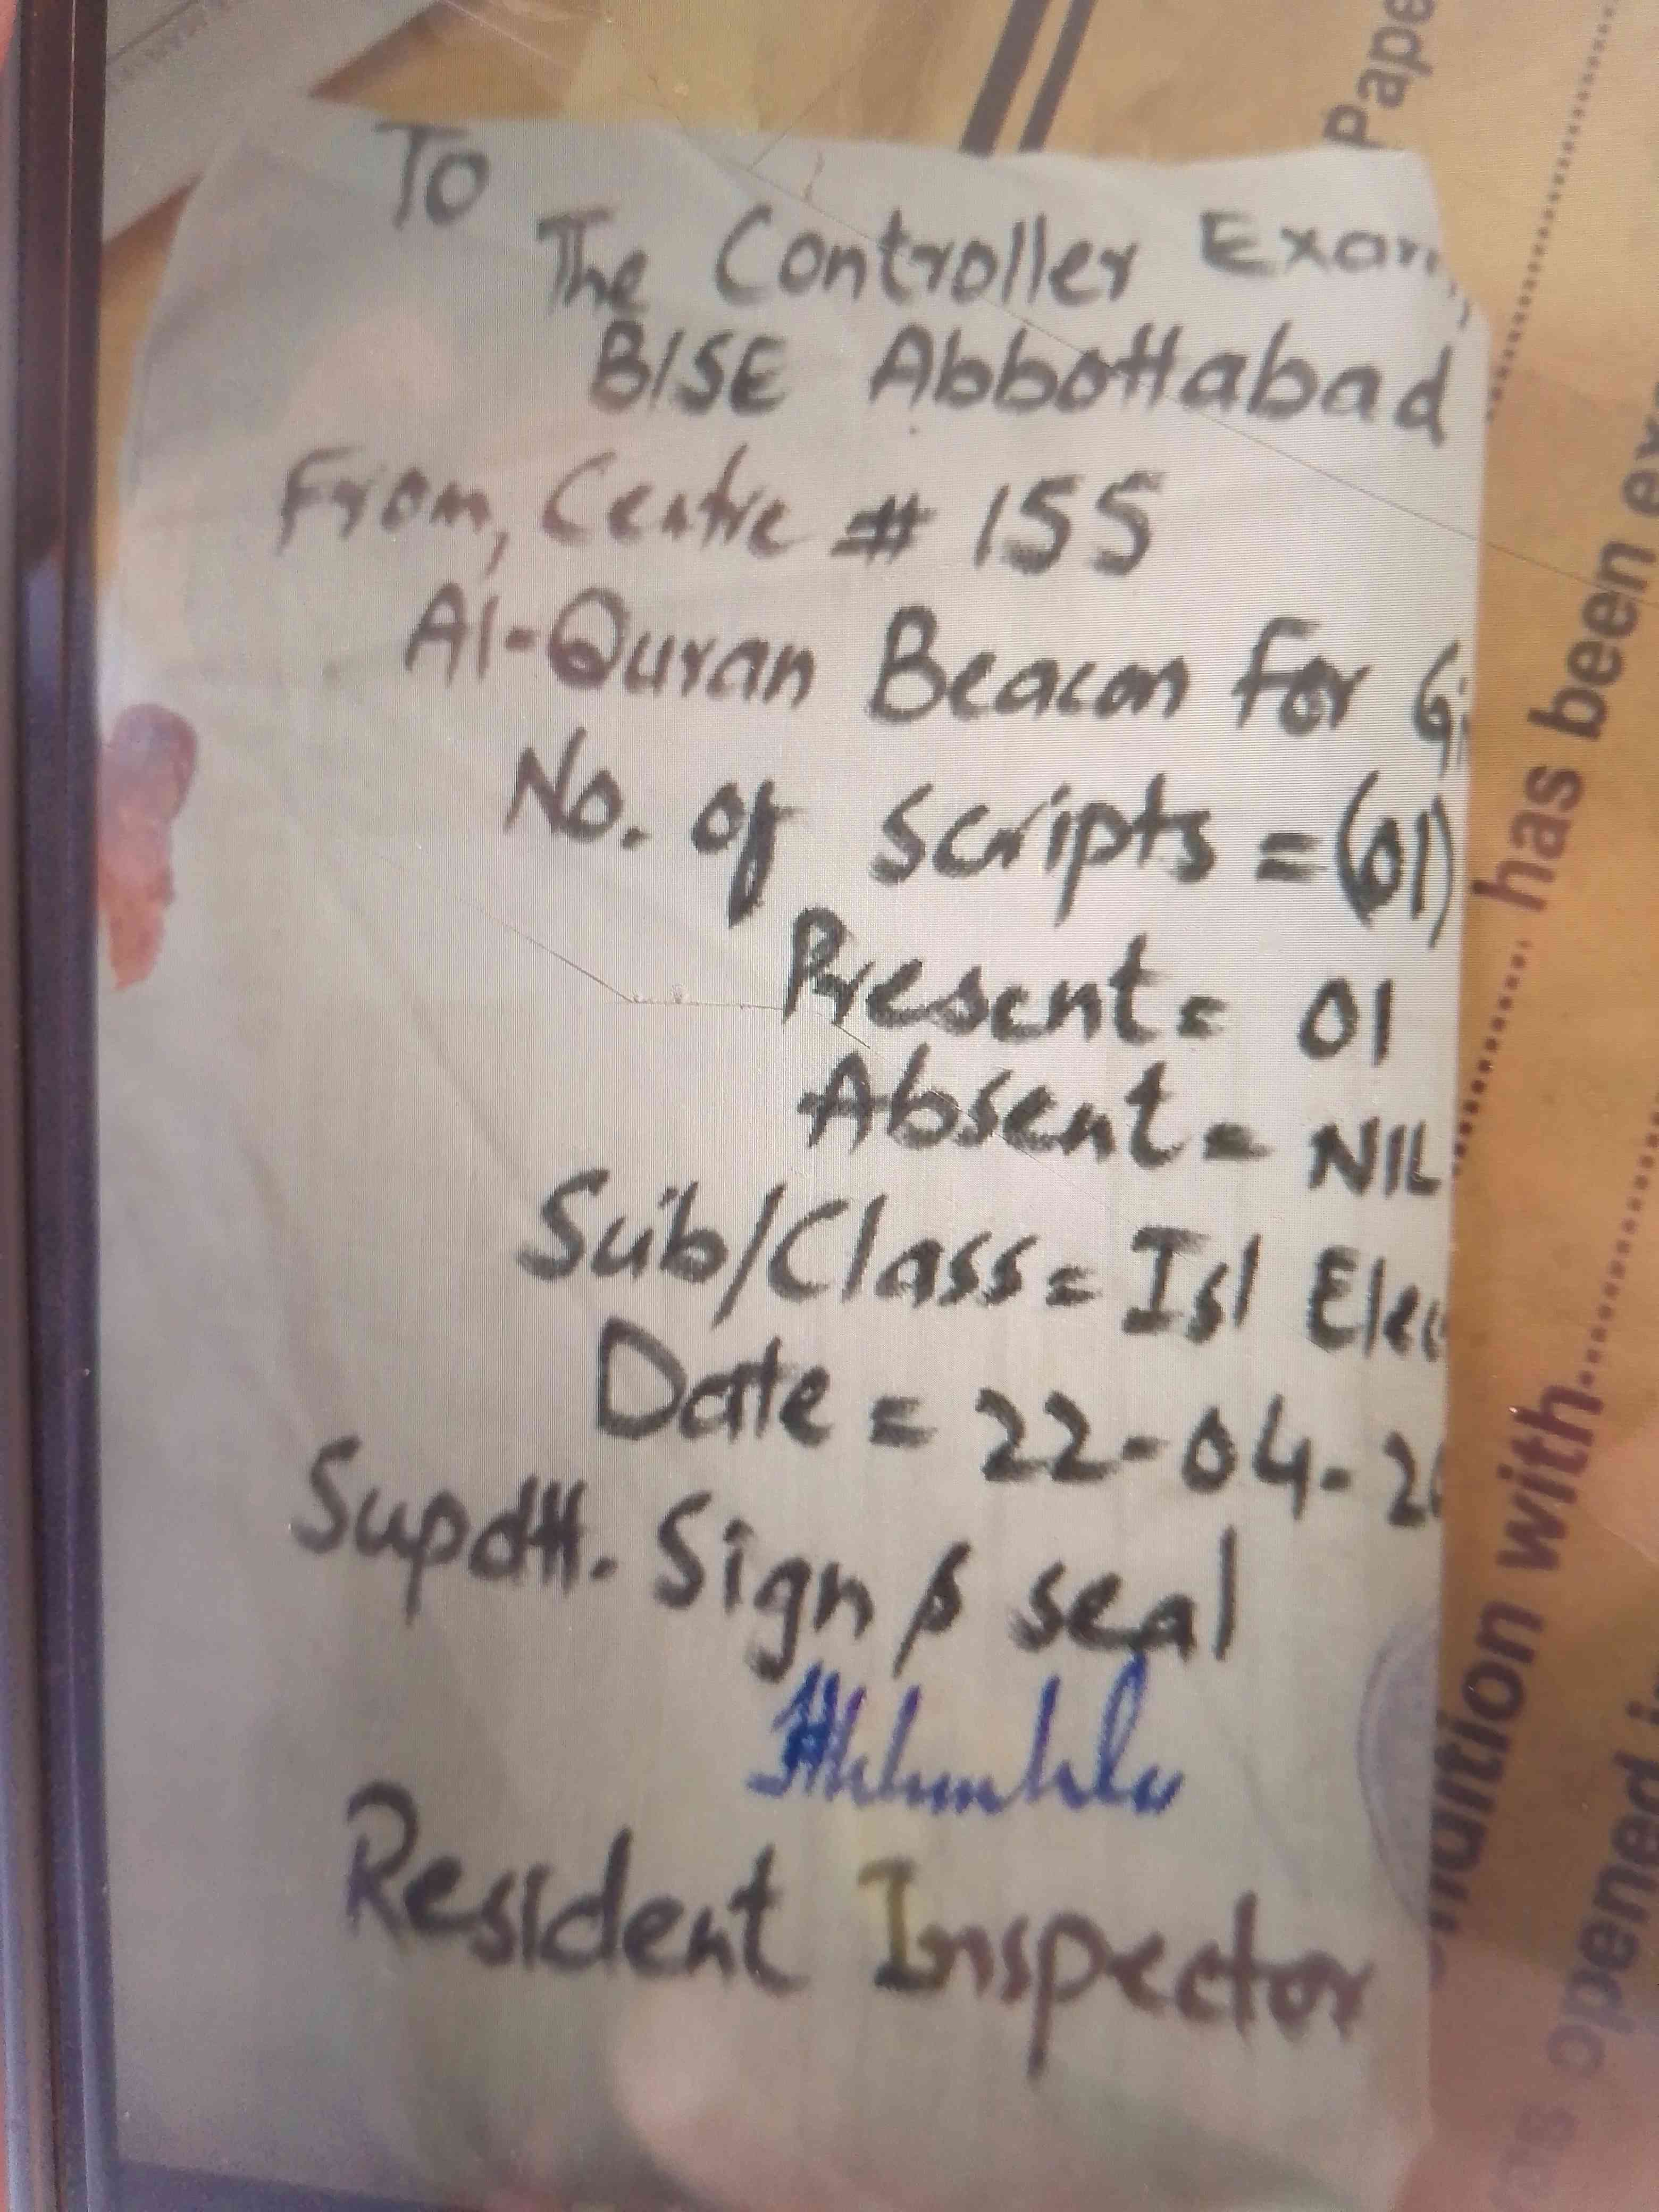 To
The Controller Exam
BISE Abbottabad
From, Centre # 155
Al-Quran Beacon For
No. of scripts = (01)
Present = 01
Absent = NIL
Sub/Class = Isl
Date = 22-04-
Supdtt. Sign & seal
Resident Inspector
Pape
has been
with
opened